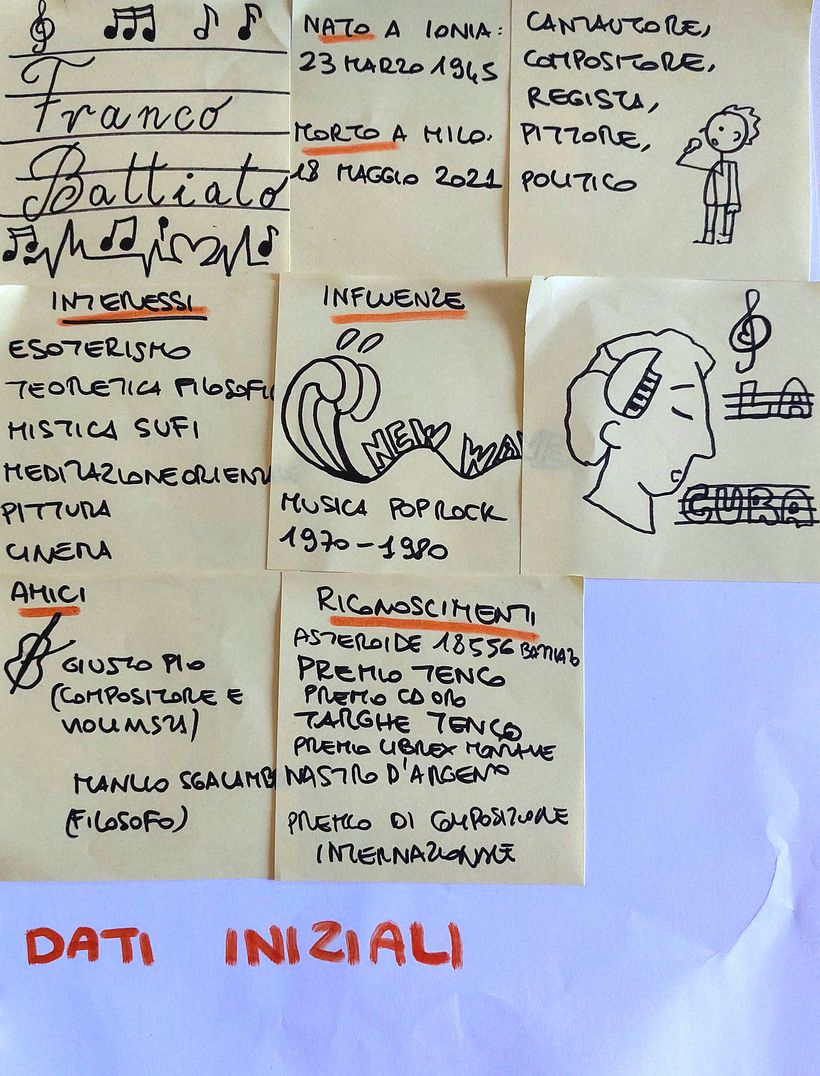 Franco
Battiato
NATO A IONIA:
23 MARZO 1945
MORTO A MILO.
18 MAGGIO 2021
CANTAUTORE,
COMPOSITORE,
REGISTA,
PITTORE,
POLITICO
INTERESSI
ESOTERISMO
TEORETICA FILOSOFI
MISTICA SUFI
MEDITAZIONE ORIENTA
PITTURA
CINEMA
INFLUENZE
NEW WAVE
MUSICA POP ROCK
1970-1980
LA
CURA
AMICI
GIUSTO PIO
(COMPOSITORE E
VIOLINISTA)
MANLIO SGALAMB
(FILOSOFO)
RICONOSCIMENTI
ASTEROIDE 18556 BATTIATO
PREMIO TENCO
PREMIO CD ORO
TARGHE TENCO
PREMIO LIBREX MONTALE
NASTRO D'ARGENTO
PREMIO DI COMPOSIZIONE
INTERNAZIONALE
DATI INIZIALI